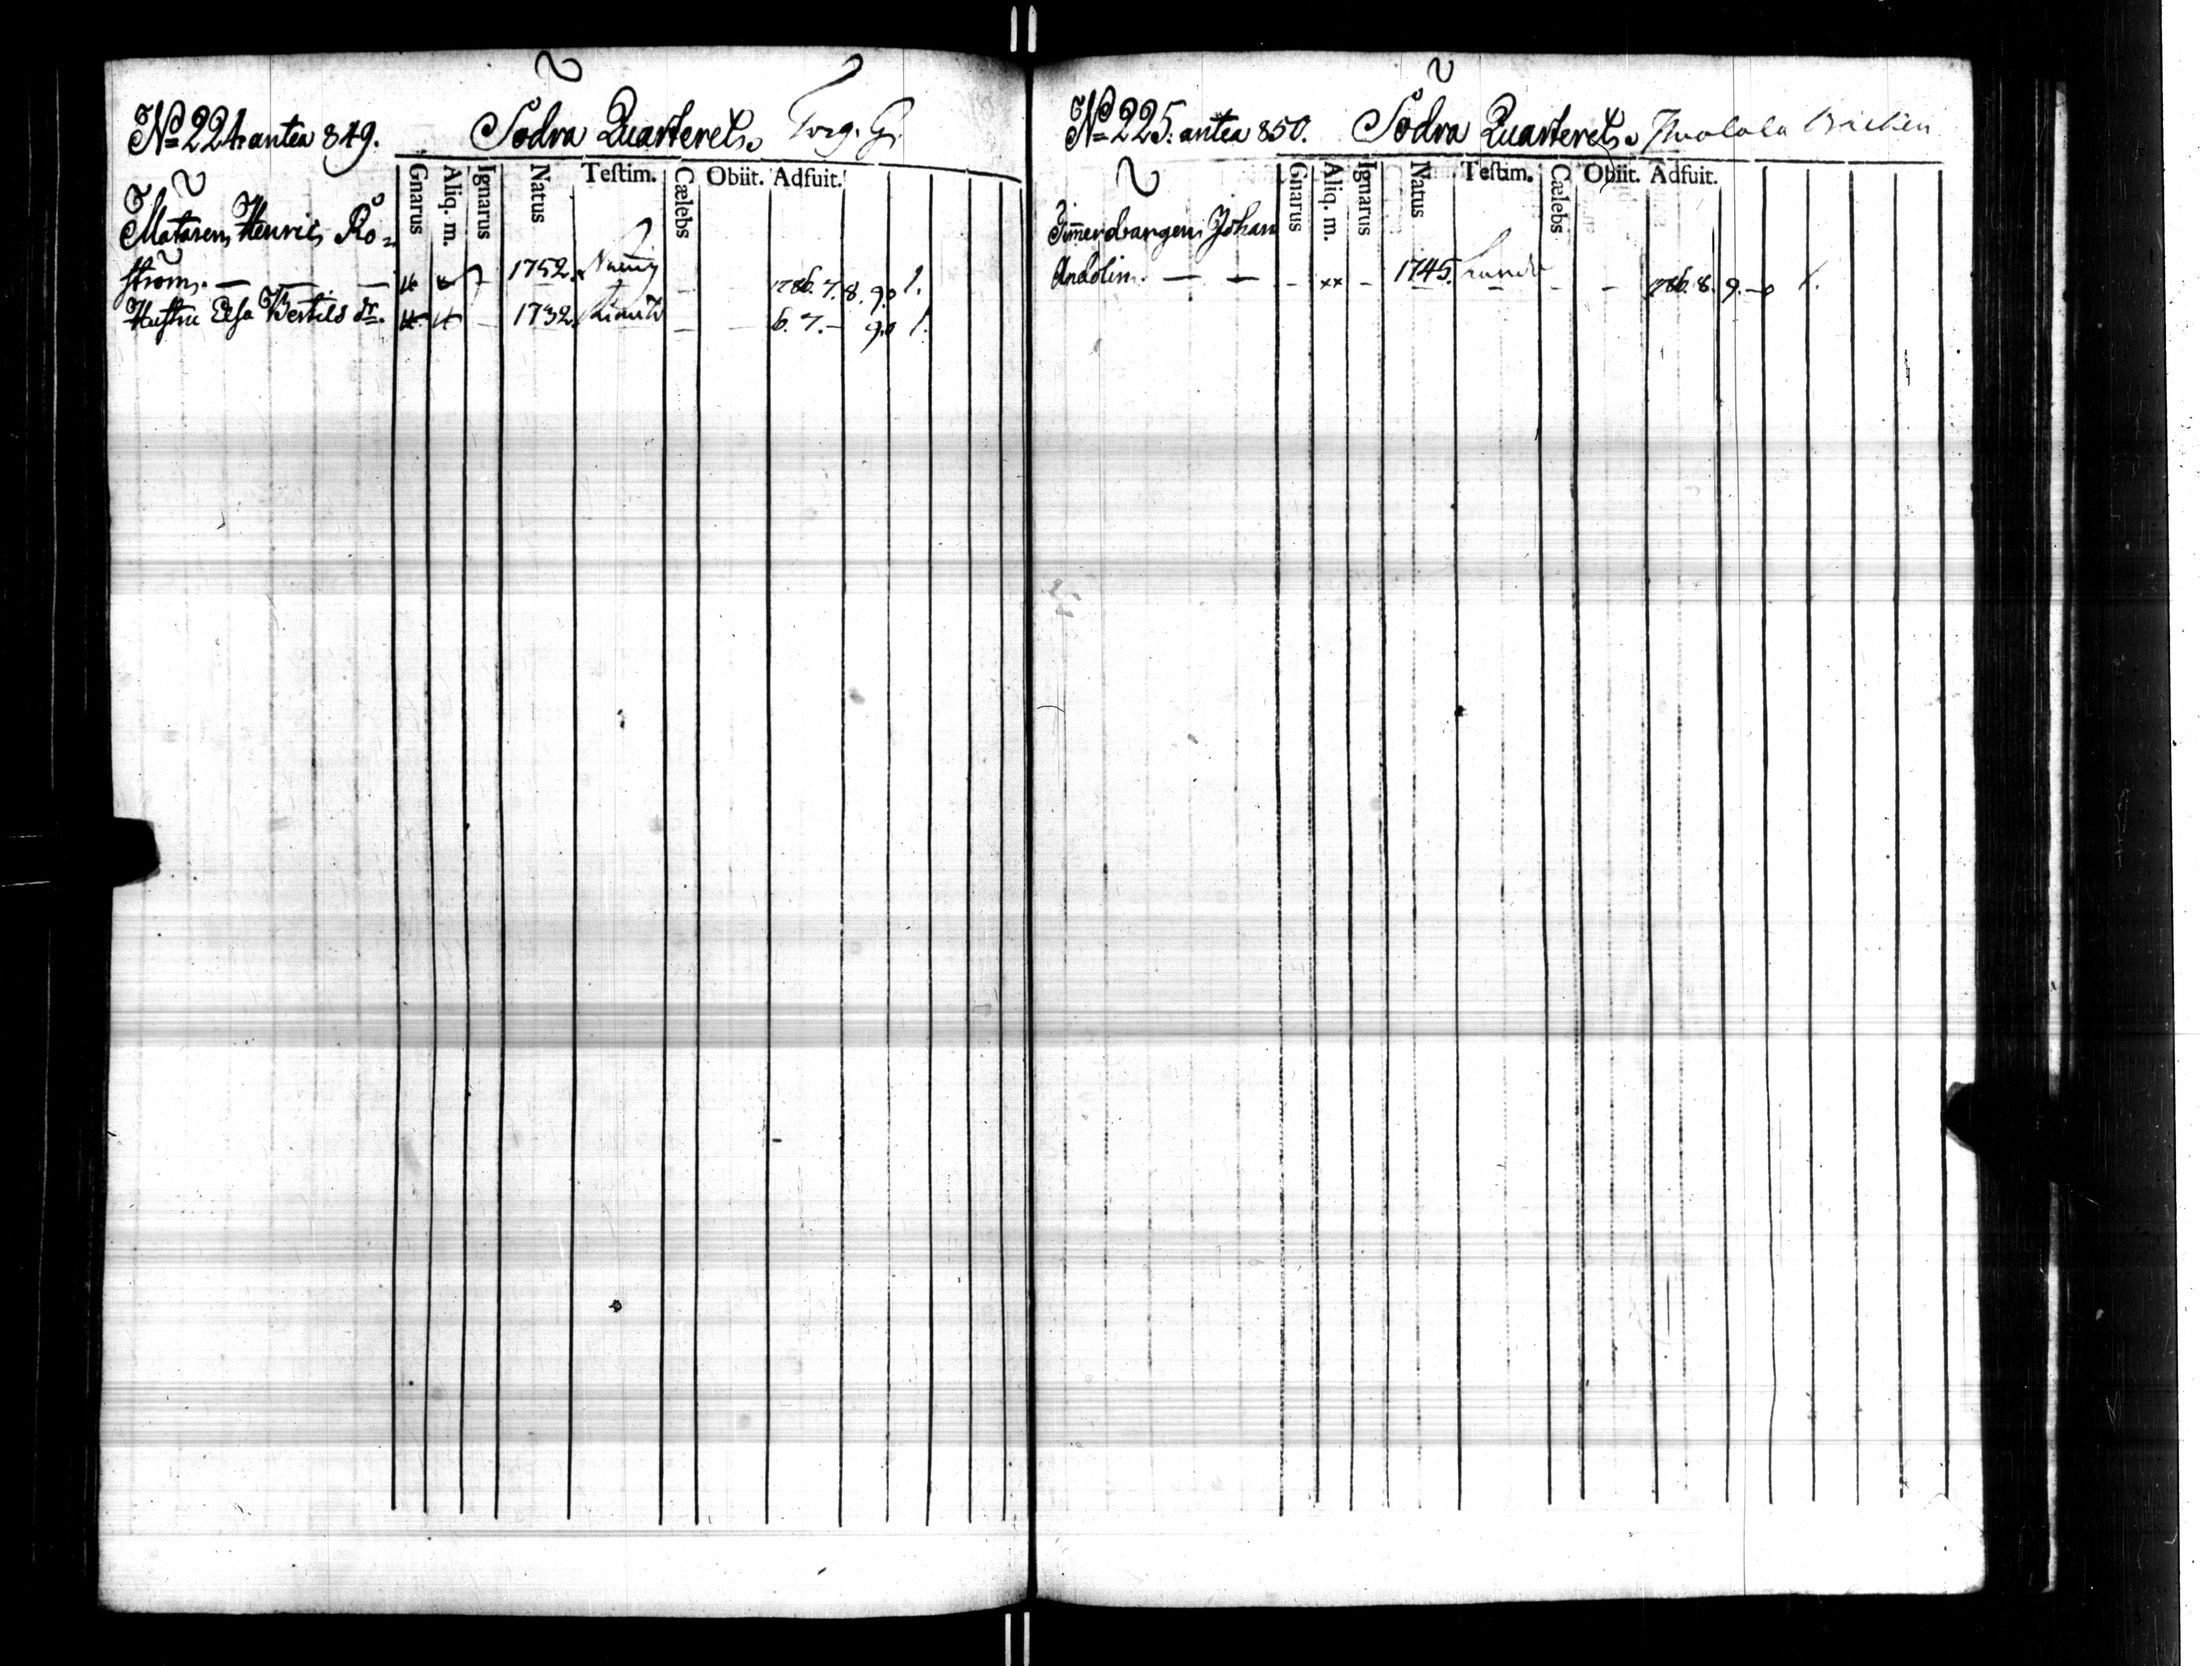 No 224 antea 849. Södra Quarteret. Torg. G.
Gnarus Aliq. m. Ignarus Natus Testim. Cælebs Obiit. Adfuit.
Matarens Henric Rö=
ström. — — — 1752. 1786. 7. 8. 9. 1.
Hustru Elsa Bertils dr. 1732 6. 7. — 9. 1.
No 225. antea 850. Södra Quarteret
Gnarus Aliq. m. Ignarus Natus Testim. Cælebs Obiit. Adfuit.
Johan
Andolin. — — - xx - 1745. - - 1786. 8. 9. 1.